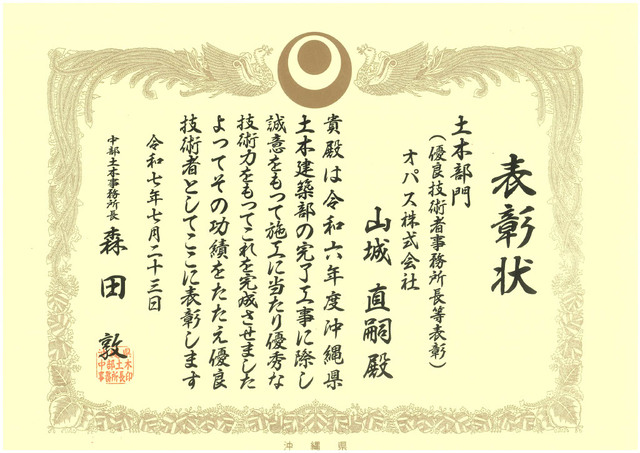 表彰状
土木部門
（優良技術者事務所長等表彰）
オパス株式会社
山城 直嗣 殿
貴殿は令和六年度沖縄県
土木建築部の完了工事に際し
誠意をもって施工に当たり優秀な
技術力をもってこれを完成させました
よってその功績をたたえ優良
技術者としてここに表彰します
令和七年七月二十三日
中部土木事務所長 森田 敦
中部土木
事務所長印
沖縄県